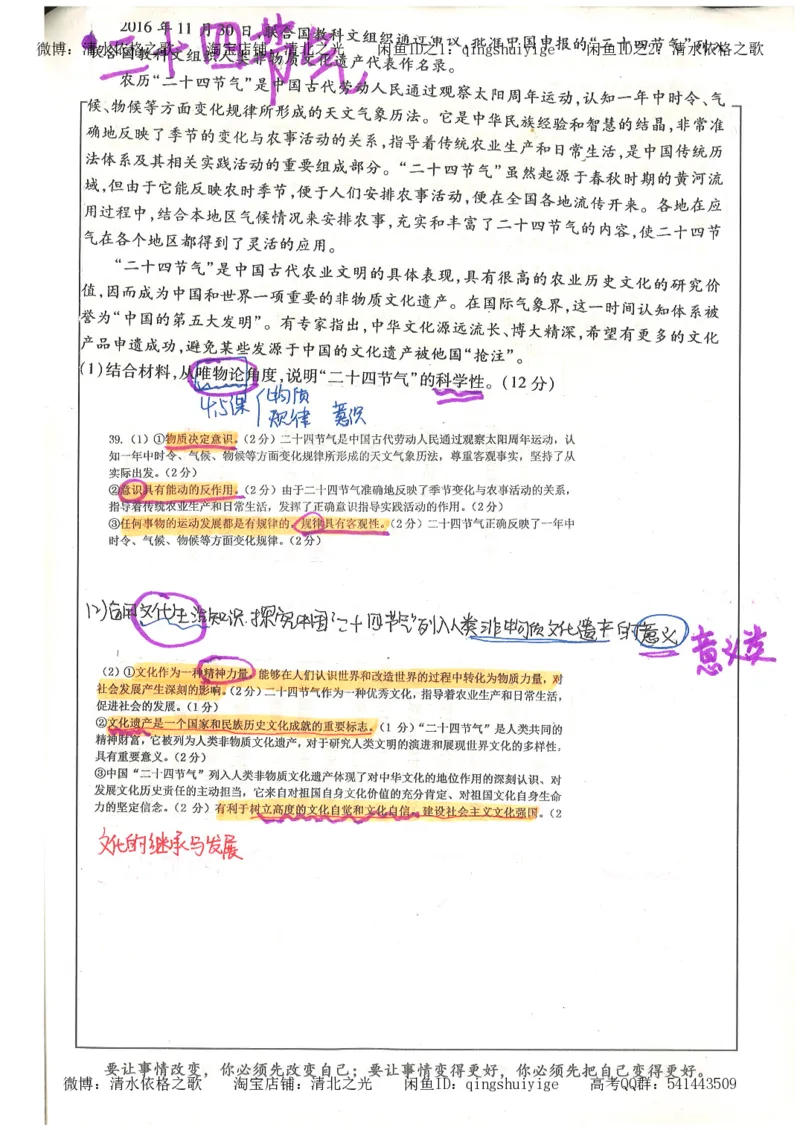 2016年11月30日,联合国教科文组织通过审议,批准中国申报的“二十四节气”列入
微博：清水依格之歌 淘宝店铺：清北之光 闲鱼ID之1：qingshuiyige 闲鱼ID之2：清水依格之歌
联合国教科文组织人类非物质文化遗产代表作名录。
二十四节气
农历“二十四节气”是中国古代劳动人民通过观察太阳周年运动,认知一年中时令、气
候、物候等方面变化规律所形成的天文气象历法。它是中华民族经验和智慧的结晶,非常准
确地反映了季节的变化与农事活动的关系,指导着传统农业生产和日常生活,是中国传统历
法体系及其相关实践活动的重要组成部分。“二十四节气”虽然起源于春秋时期的黄河流
域,但由于它能反映农时季节,便于人们安排农事活动,便在全国各地流传开来。各地在应
用过程中,结合本地区气候情况来安排农事,充实和丰富了二十四节气的内容,使二十四节
气在各个地区都得到了灵活的应用。
“二十四节气”是中国古代农业文明的具体表现,具有很高的农业历史文化的研究价
值,因而成为中国和世界一项重要的非物质文化遗产。在国际气象界,这一时间认知体系被
誉为“中国的第五大发明”。有专家指出,中华文化源远流长、博大精深,希望有更多的文化
产品申遗成功,避免某些发源于中国的文化遗产被他国“抢注”。
(1)结合材料,从唯物论角度,说明“二十四节气”的科学性。(12分)
4.5课 物质
规律 意识
39.（1）①物质决定意识。（2分）二十四节气是中国古代劳动人民通过观察太阳周年运动，认
知一年中时令、气候、物候等方面变化规律所形成的天文气象历法，尊重客观事实，坚持了从
实际出发。（2分）
②意识具有能动的反作用。（2分）由于二十四节气准确地反映了季节变化与农事活动的关系，
指导着传统农业生产和日常生活，发挥了正确意识指导实践活动的作用。（2分）
③任何事物的运动发展都是有规律的，规律具有客观性。（2分）二十四节气正确反映了一年中
时令、气候、物候等方面变化规律。（2分）
(2)运用文化生活知识,探究中国“二十四节气”列入人类非物质文化遗产的意义
意义类
（2）①文化作为一种精神力量，能够在人们认识世界和改造世界的过程中转化为物质力量，对
社会发展产生深刻的影响。（2分）二十四节气作为一种优秀文化，指导着农业生产和日常生活，
促进社会的发展。（1分）
②文化遗产是一个国家和民族历史文化成就的重要标志。（1分）“二十四节气”是人类共同的
精神财富，它被列为人类非物质文化遗产，对于研究人类文明的演进和展现世界文化的多样性，
具有重要意义。（2分）
③中国“二十四节气”列入人类非物质文化遗产体现了对中华文化的地位作用的深刻认识、对
发展文化历史责任的主动担当，它来自对祖国自身文化价值的充分肯定、对祖国文化自身生命
力的坚定信念。（2分）有利于树立高度的文化自觉和文化自信，建设社会主义文化强国。（2
文化的继承与发展
要让事情改变，你必须先改变自己；要让事情变得更好，你必须先把自己变得更好。
微博：清水依格之歌 淘宝店铺：清北之光 闲鱼ID：qingshuiyige 高考QQ群：541443509